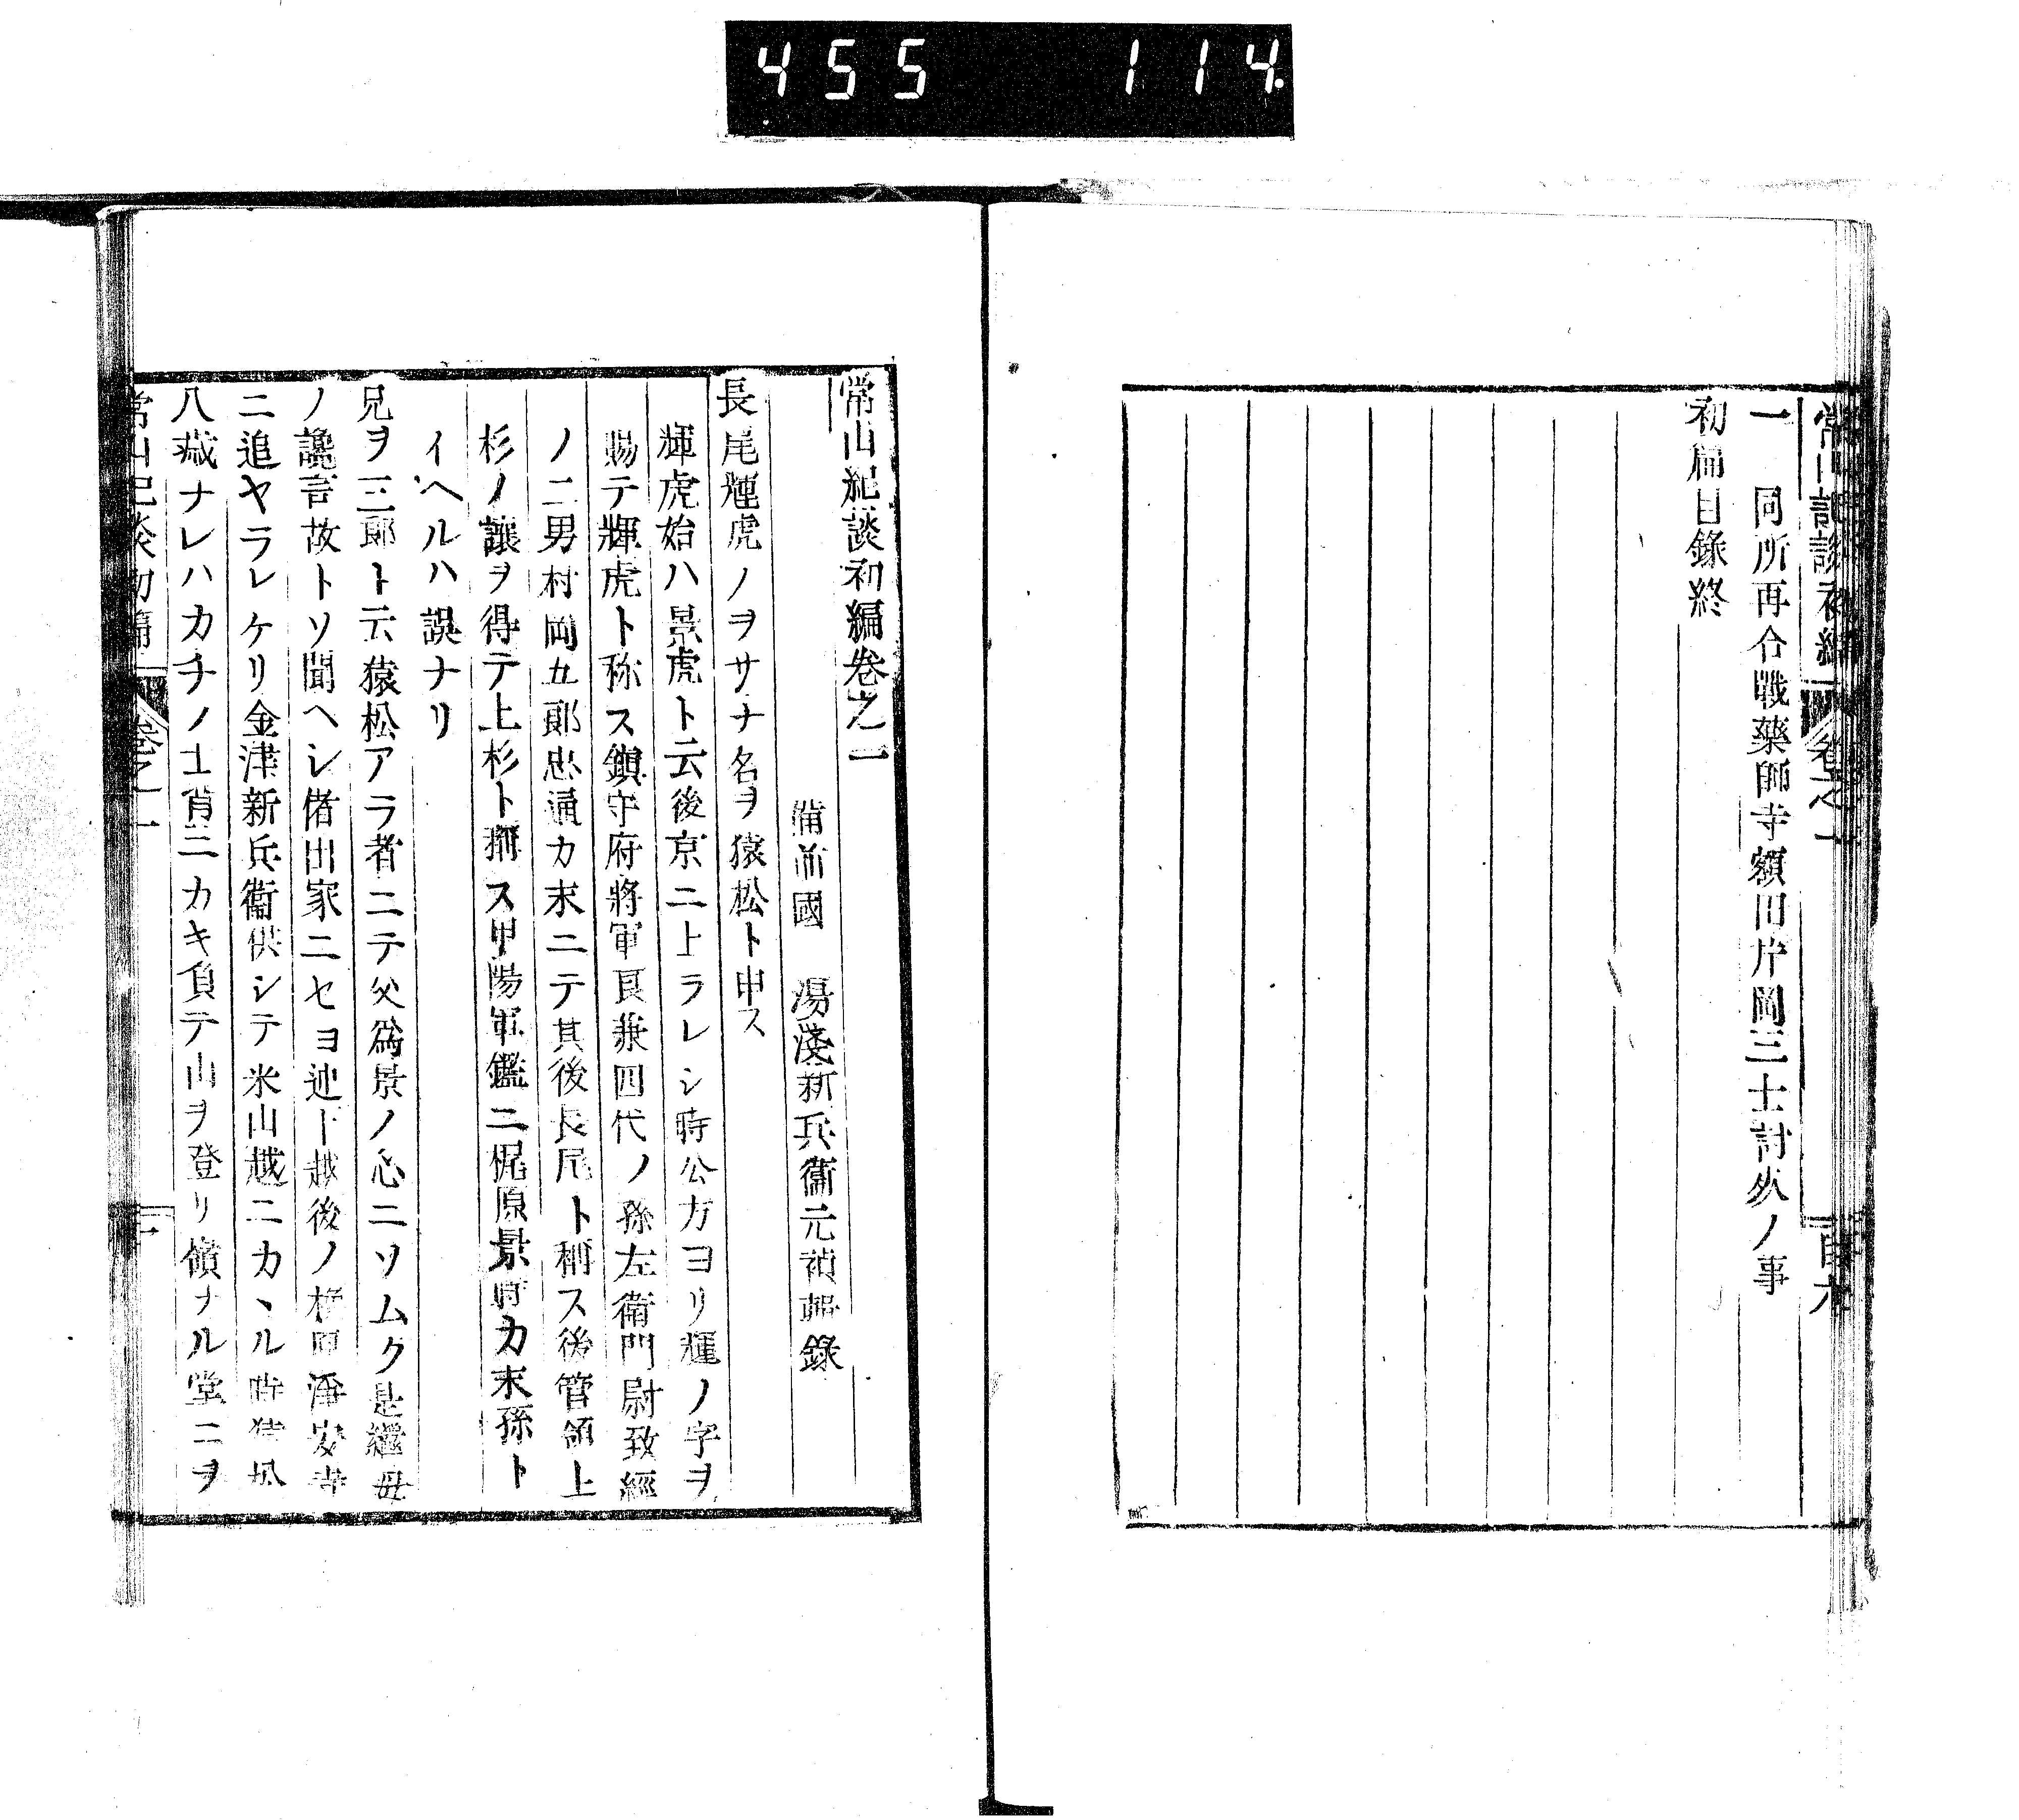 455 114
常山記談初編 卷之一 百六
一 同所再合戰藥師寺額田片岡三士討死ノ事
初編目錄終
常山紀談初編卷之一
備前國 湯淺新兵衞元禎輯錄
長尾輝虎ノヲサナ名ヲ猿松ト申ス
輝虎始ハ景虎ト云後京ニ上ラレシ時公方ヨリ輝ノ字ヲ
賜テ輝虎ト称ス鎭守府將軍良兼四代ノ孫左衛門尉致經
ノ二男村岡五郎忠通カ末ニテ其後長尾ト稱ス後管領上
杉ノ讓ヲ得テ上杉ト稱ス甲陽軍鑑ニ梶原景時カ末孫ト
イヘルハ誤ナリ
兄ヲ三郎ト云猿松アラ者ニテ父爲景ノ心ニソムク是繼母
ノ讒言故トソ聞ヘシ偖出家ニセヨ迚ト越後ノ安寺
ニ追ヤラレケリ金津新兵衞供シテ米山越ニカヽル時猿松
八歳ナレハカチノ士背ニカキ負テ山ヲ登リ嶺ナル堂ニヲ
常山紀談初編 卷之一 一